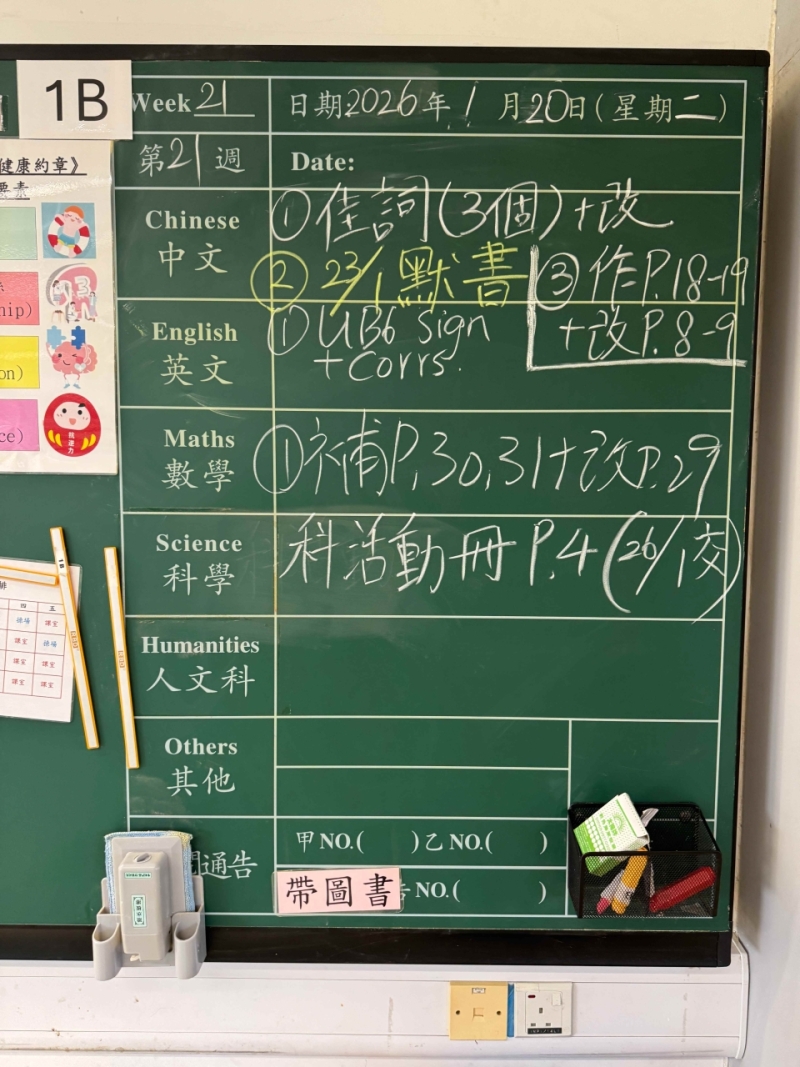 1B
Week 21
日期2026年1月20日(星期二)
第21週
Date:
健康約章》
要素
hip)
on)
ce)
抗逆力
Chinese
中文
①佳詞(3個)+改
②23/1默書
③作P.18-19
+改P.8-9
English
英文
①UB6 Sign
+Corrs.
Maths
數學
①補P.30,31+改P.29
Science
科學
科活動冊 P.4 (26/1交)
Humanities
人文科
Others
其他
甲NO.( )乙NO.( )
通告
帶圖書
NO.( )
1B
四 五
操場 課室
課室 操場
課室 課室
課室 課室